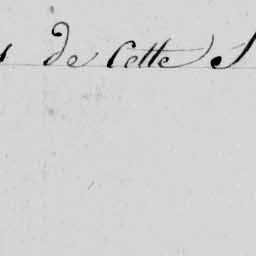 de Cette